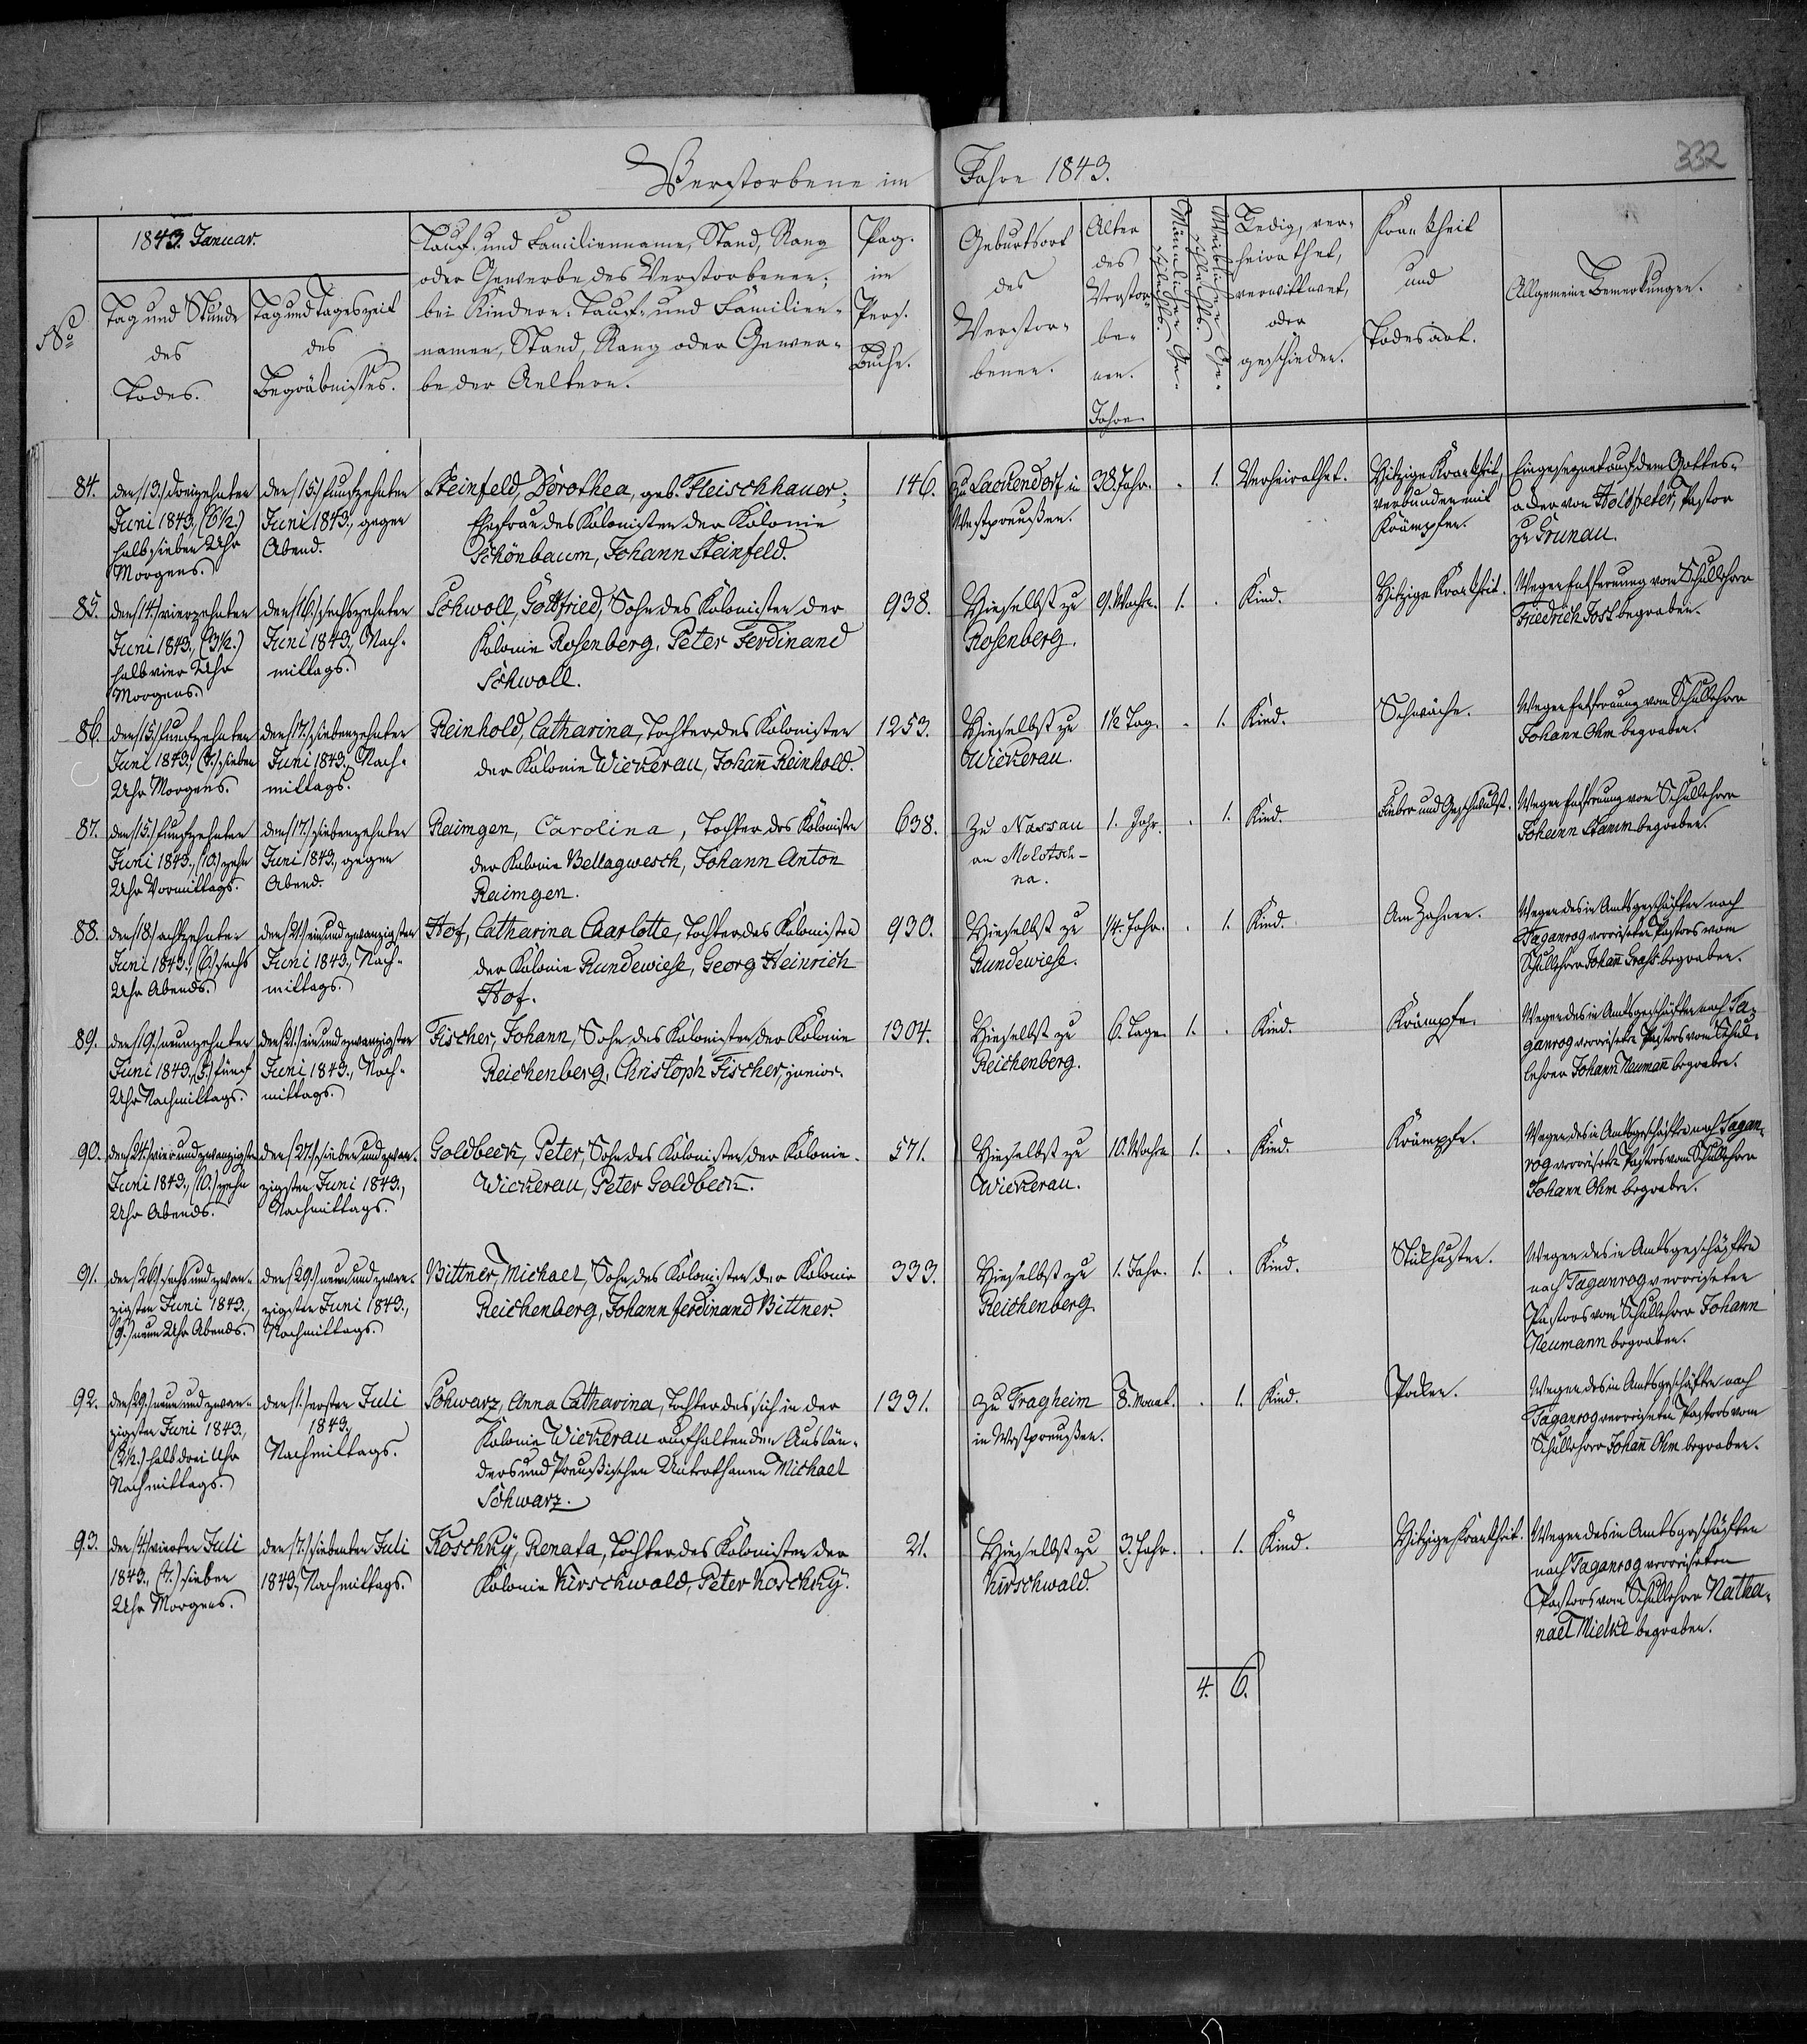 Verstorbene im Jahre 1843.
332
No
1843. Januar.
Tag und Stunde
des
Todes.
Tag und Tageszeit
des
Begräbnisses.
Tauf- und Familienname, Stand, Rang
oder Gewerbe des Verstorbenen;
bei Kindern: Tauf- und Familien-
namen, Stand, Rang oder Gewer-
be der Aeltern.
Pag.
im
Pers.
Buche.
Geburtsort
des
Verstor-
benen.
Alter
des
Verstor-
be-
nen.
Jahre
Männlichen Ge-
schlechts.
Weiblichen Ge-
schlechts.
Ledig, ver-
heirathet,
verwittwet,
oder
geschieden.
Krankheit
und
Todesart.
Allgemeine Bemerkungen.
84.
den (13.) dreizehnten
Juni 1843., (6½.)
halb sieben Uhr
Morgens.
den (15.) fünfzehnten
Juni 1843., gegen
Abend.
Steinfeld, Dorothea, geb. Fleischhauer;
Ehefrau des Kolonisten der Kolonie
Schönbaum, Johann Steinfeld.
146.
Zu Lackendorf in
Westpreußen.
38. Jahr.
.
1.
Verheirathet.
Hitzige Krankheit,
verbunden mit
Krämpfen.
Eingesegnet auf dem Gottes-
acker von Holtfreter, Pastor
zu Grunau.
85.
den (14.) vierzehnten
Juni 1843., (3½.)
halb vier Uhr
Morgens.
den (16.) sechszehnten
Juni 1843., Nach-
mittags.
Schwoll, Gottfried, Sohn des Kolonisten der
Kolonie Rosenberg, Peter Ferdinand
Schwoll.
938.
Hieselbst zu
Rosenberg.
9. Wochen.
1.
.
Kind.
Hitzige Krankheit.
Wegen Entfernung vom Schullehrer
Friedrich Jost begraben.
86.
den (15.) fünfzehnten
Juni 1843., (7.) sieben
Uhr Morgens.
den (17.) siebenzehnten
Juni 1843., Nach-
mittags.
Reinhold, Catharina, Tochter des Kolonisten
der Kolonie Wickerau, Johann Reinhold.
1253.
Hieselbst zu
Wickerau.
1½ Tag.
.
1.
Kind.
Schwäche.
Wegen Entfernung vom Schullehrer
Johann Ohm begraben.
87.
den (15.) fünfzehnten
Juni 1843., (10.) zehn
Uhr Vormittags.
den (17.) siebenzehnten
Juni 1843., gegen
Abend.
Raimgen, Carolina, Tochter des Kolonisten
der Kolonie Bellagwesch, Johann Anton
Raimgen.
638.
Zu Nassau
an Molotsch-
na.
1. Jahr.
.
1.
Kind.
Fieber und Geschwulst.
Wegen Entfernung vom Schullehrer
Johann Stamm begraben.
88.
den (18.) achtzehnten
Juni 1843., (6.) sechs
Uhr Abends.
den (21.) ein und zwanzigsten
Juni 1843., Nach-
mittags.
Hof, Catharina Charlotte, Tochter des Kolonisten
der Kolonie Rundewiese, Georg Heinrich
Hof.
930.
Hieselbst zu
Rundewiese.
¼. Jahr.
.
1.
Kind.
Am Zahnen.
Wegen des in Amtsgeschäften nach
Taganrog verreiseten Pastors vom
Schullehrer Johann begraben.
89.
den (19.) neunzehnten
Juni 1843., (5.) fünf
Uhr Nachmittags.
den (21.) ein und zwanzigsten
Juni 1843., Nach-
mittags.
Fischer, Johann, Sohn des Kolonisten der Kolonie
Reichenberg, Christoph Fischer, junior.
1304.
Hieselbst zu
Reichenberg.
6. Tage
1.
.
Kind.
Krämpfe.
Wegen des in Amtsgeschäften nach Ta-
ganrog verreiseten Pastors vom Schul-
lehrer Johann Neumann begraben.
90.
den (24.) vier und zwanzigsten
Juni 1843., (10.) zehn
Uhr Abends.
den (27.) sieben und zwan-
zigsten Juni 1843.,
Nachmittags.
Goldbeck, Peter, Sohn des Kolonisten der Kolonie
Wickerau, Peter Goldbeck.
571.
Hieselbst zu
Wickerau.
10. Wochen
1.
.
Kind.
Krämpfe.
Wegen des in Amtsgeschäften nach Tagan-
rog verreiseten Pastors vom Schullehrer
Johann Ohm begraben.
91.
den (26.) sechs und zwan-
zigsten Juni 1843.,
(9.) neun Uhr Abends.
den (29.) neun und zwan-
zigsten Juni 1843.,
Nachmittags.
Bittner, Michael, Sohn des Kolonisten der Kolonie
Reichenberg, Johann Ferdinand Bittner.
333.
Hieselbst zu
Reichenberg.
1. Jahr.
1.
.
Kind.
Stickhusten.
Wegen des in Amtsgeschäften
nach Taganrog verreiseten
Pastors vom Schullehrer Johann
Neumann begraben.
92.
den (29.) neun und zwan-
zigsten Juni 1843.,
(2½.) halb drei Uhr
Nachmittags.
den (1.) ersten Juli
1843.,
Nachmittags.
Schwarz, Anna Catharina, Tochter des sich in der
Kolonie Wickerau aufhaltenden Auslän-
ders und Preußischen Unterthanen Michael
Schwarz.
1391.
Zu Tragheim
in Westpreußen.
8. Monat.
.
1.
Kind.
Pocken.
Wegen des in Amtsgeschäften nach
Taganrog verreiseten Pastors vom
Schullehrer Johann Ohm begraben.
93.
den (4.) vierten Juli
1843., (7.) sieben
Uhr Morgens.
den (7.) siebenten Juli
1843., Nachmittags.
Koschky, Renata, Tochter des Kolonisten der
Kolonie Kirschwald, Peter Koschky.
21.
Hieselbst zu
Kirschwald.
3. Jahr.
.
1.
Kind.
Hitzige Krankheit.
Wegen des in Amtsgeschäften
nach Taganrog verreiseten
Pastors vom Schullehrer Natha-
nael Mielke begraben.
4.
6.